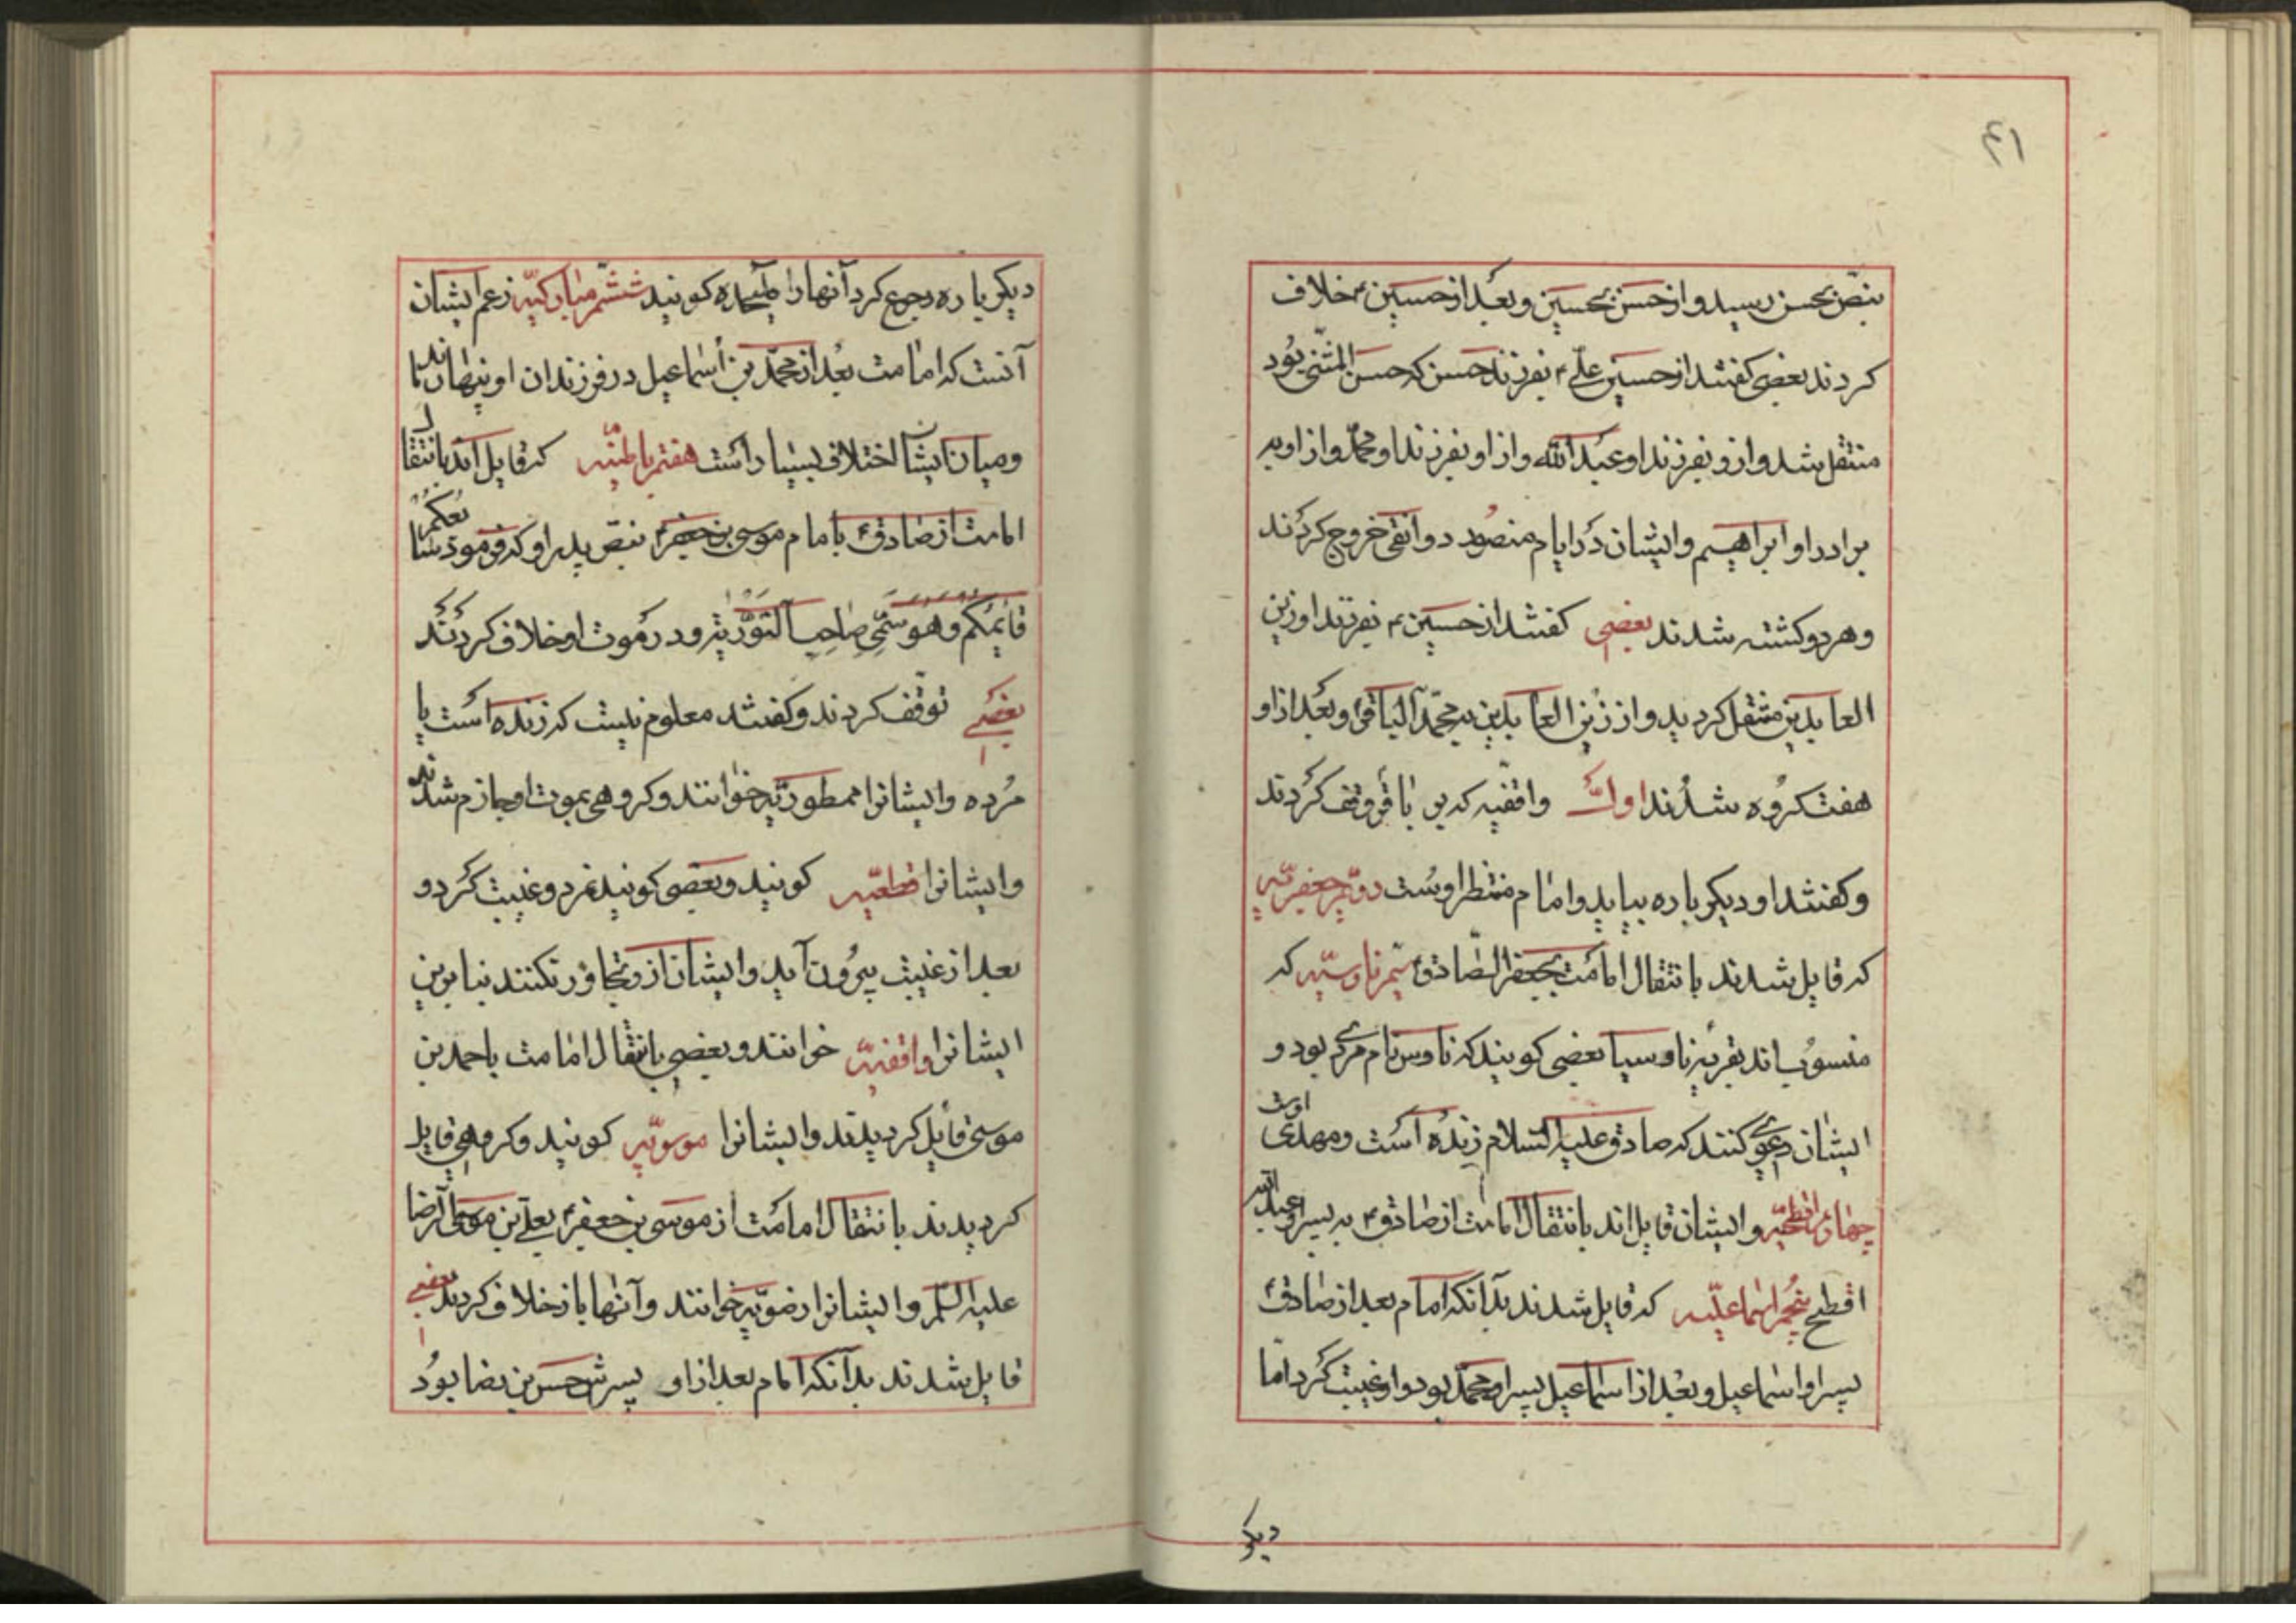 ۴۱
بنصّ بحسن رسید و از حسن بحسین و بعد از حسین ع خلاف
کردند بعضی کفتند از حسین علی ع بفرزند حسن که حسن المثنی بود
منتقل شد و ازو بفرزند او عبد الله و از او بفرزند او محمّد و از او به
برادر او ابراهیم و ایشان در ایام منصور دوانقی خروج کردند
و هر دو کشته شدند بعضی کفتند از حسین ع بفرزند او زین
العابدین منتقل کردید و از زین العابدین به محمّد الباقر و بعد از او
هفت کروه شدند اوّل واقفیه که بر باقر وقف کردند
و کفتند او دیکر باره بیاید و امام منتظر اوست دوّم جعفریّه
که قایل شدند بانتقال امامت بجعفر الصّادق سیّم ناوسیّه که
منسوب اند بقریه ناوسیا بعضی کویند که ناوس نام مردی بود و
ایشان دعوی کنند که صادق علیه السلام زنده است و مهدی اوست
چهارم افطحیّه و ایشان قایل اند بانتقال امامت از صادق ع به پسر او عبد الله
افطح پنجم اسماعیلیّه که قایل شدند بدآنکه امام بعد از صادق ع
پسر او اسماعیل و بعد از اسماعیل پسر او محمّد بود و او غیبت کرد امّا
دیکر
دیکر باره رجوع کرد آنها را کویند ششم مبارکیّه زعم ایشان
آنست که امامت بعد از محمّد بن اسماعیل در فرزندان او بنهادند تا
و میان ایشان اختلاف بسیار است هفتم باطنیّه که قایل اند بانتقال
امامت از صادق ع بامام موسی بن جعفر ع بنصّ پدر او که فرمود سابعکم
قائمکم و هو سمّی صاحب التوریة و در موت او خلاف کردند
بعضی توقّف کردند و کفتند معلوم نیست که زنده است یا
مرده و ایشانرا ممطوریّه خوانند و کروهی بموت او جازم شدند
و ایشانرا قطعیّه کویند و بعضی کویند نمرد و غیبت کرد و
بعد از غیبت بیرون آید و ایشان ازو تجاوز نکنند بنابرین
ایشانرا واقفیّه خوانند و بعضی بانتقال امامت باحمد بن
موسی قائل کردیدند و ایشانرا موسویّه کویند و کروهی قایل
کردیدند بانتقال امامت از موسی بن جعفر ع بعلی بن موسی الرضا
علیه السلم و ایشانرا رضویّه خوانند و آنها باز خلاف کردند بعضی
قایل شدند بدآنکه امام بعد از او پسرش حسن بن رضا بود